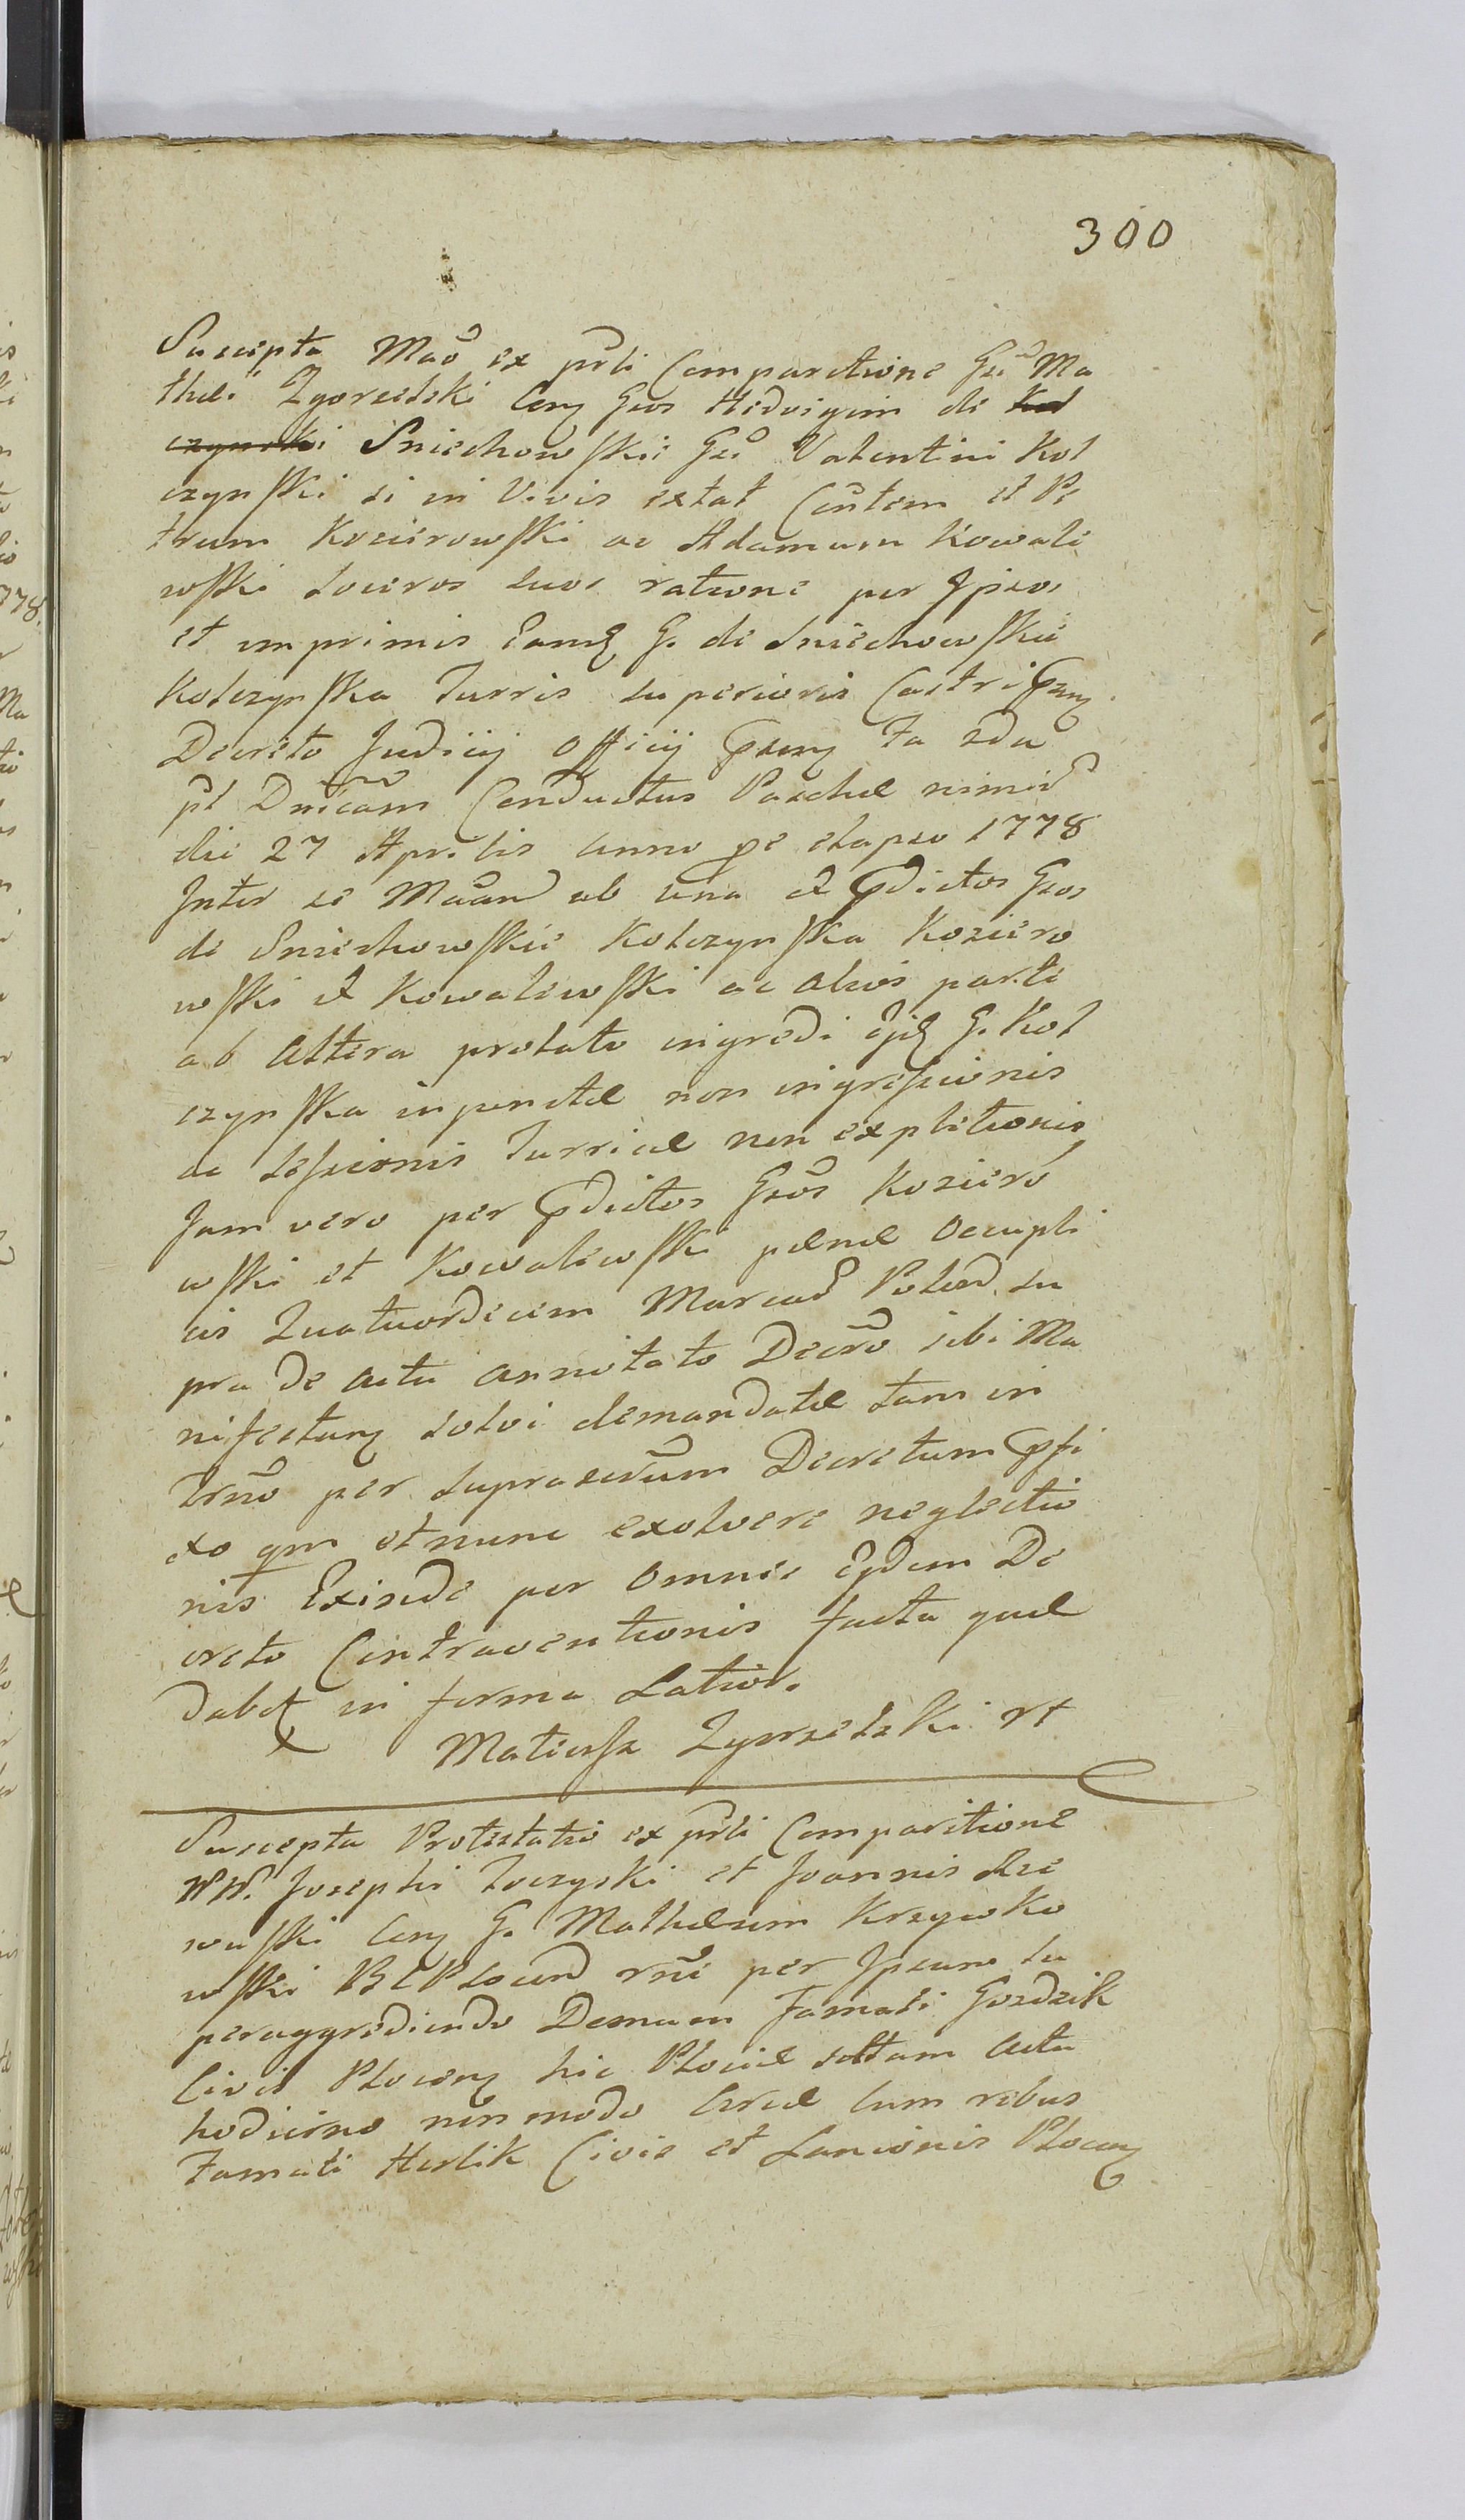 300
Suscepta Maõ ex prli Comparitione Gsi Ma
thei Zgorzelski Con Gsos Hedvigim de Kol
czynski Sniechowskie Gsi Valentini Kol
czynski si in Vivis extat Contem et Pe
trum Kozierowski ac Adamum Kowale
wski Soceros suos ratione per Ipsos
et imprimis eamq G. de Sniechowskie
Kolczynska Turris superioris Castri
Decreto Judicij Officij Fa 2da
pt Dnicam Conductus Paschæ
die 27 Aprilis anno elapso 1778
Inter se Maan ab una et pdictos Gsos
de Sniechowskie Kolczynska Koziero
wski et Kowalewski ac alios parte
ab altera prolato ingredi G. Kol
czynska in punctæ non ingressionis
ac sessionis Turriæ non expletionis
Jam vero per pdictos Gsos Koziero
wski et Kowalewski pænæ
is Quatuordecim Marcarum su
pra de actu annotato Decro sibi Ma
nifestanq solvi demandatæ tam in
Trno per suprascrum Decretum pfi
xo qm et nunc exolvere neglectio
nis Exinde per omnes Ejdem De
creto Contraventionis facta quæ
dabit in forma Latior.
Mateusz Zgorzelski
Suscepta Protestatio ex prli Comparitione
WW. Josephi Toczyski et Joannis
wuski Con G. Mathæum Krzywko
wski rne per Ipsum su
peraggrediendo Domum Famati Gozdzik
Civis Plocen hic Plociæ sittam actu
hodierno non modo cum rebus
Famati Herlik Civis et Lanionis Plocen